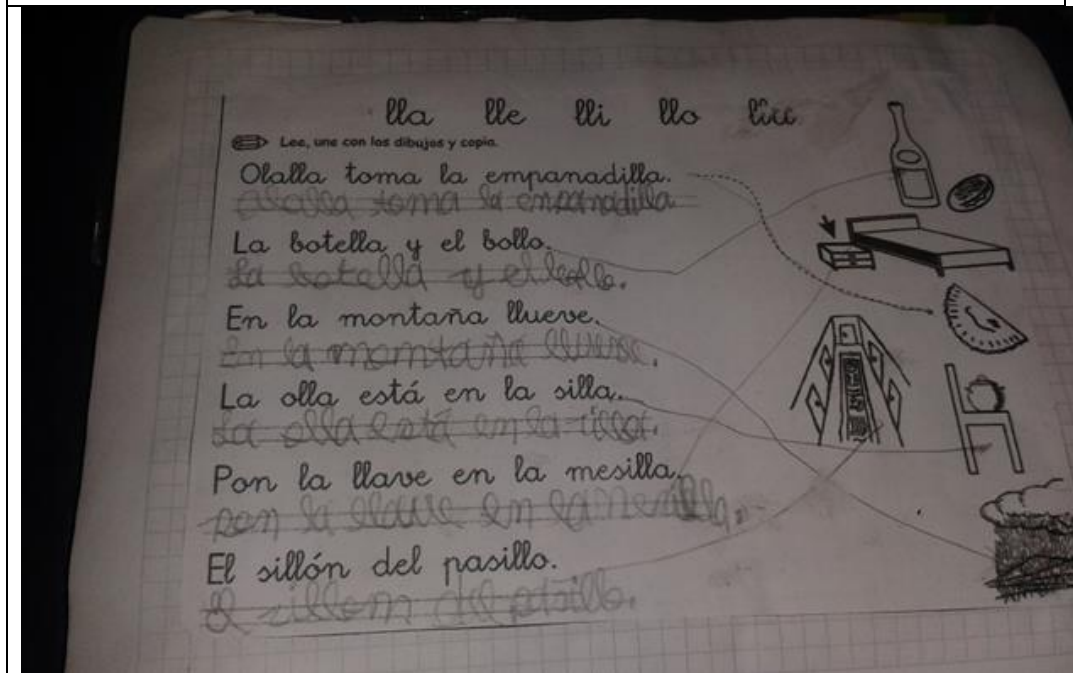 lla lle lli llo llu
Lee, une con los dibujos y copia.
Olalla toma la empanadilla.
Olalla toma la enpanadilla
La botella y el bollo.
La botella y el bollo.
En la montaña llueve.
En la momtaña llueve.
La olla está en la silla.
La olla está en la silla.
Pon la llave en la mesilla.
pon la llave en la mesilla.
El sillón del pasillo.
El sillom del pasillo.